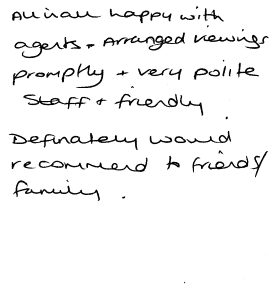 All in all happy with
agents + Arranged viewings
promptly + very polite
Staff + friendly .
Definately would
recommend to friends/
family .